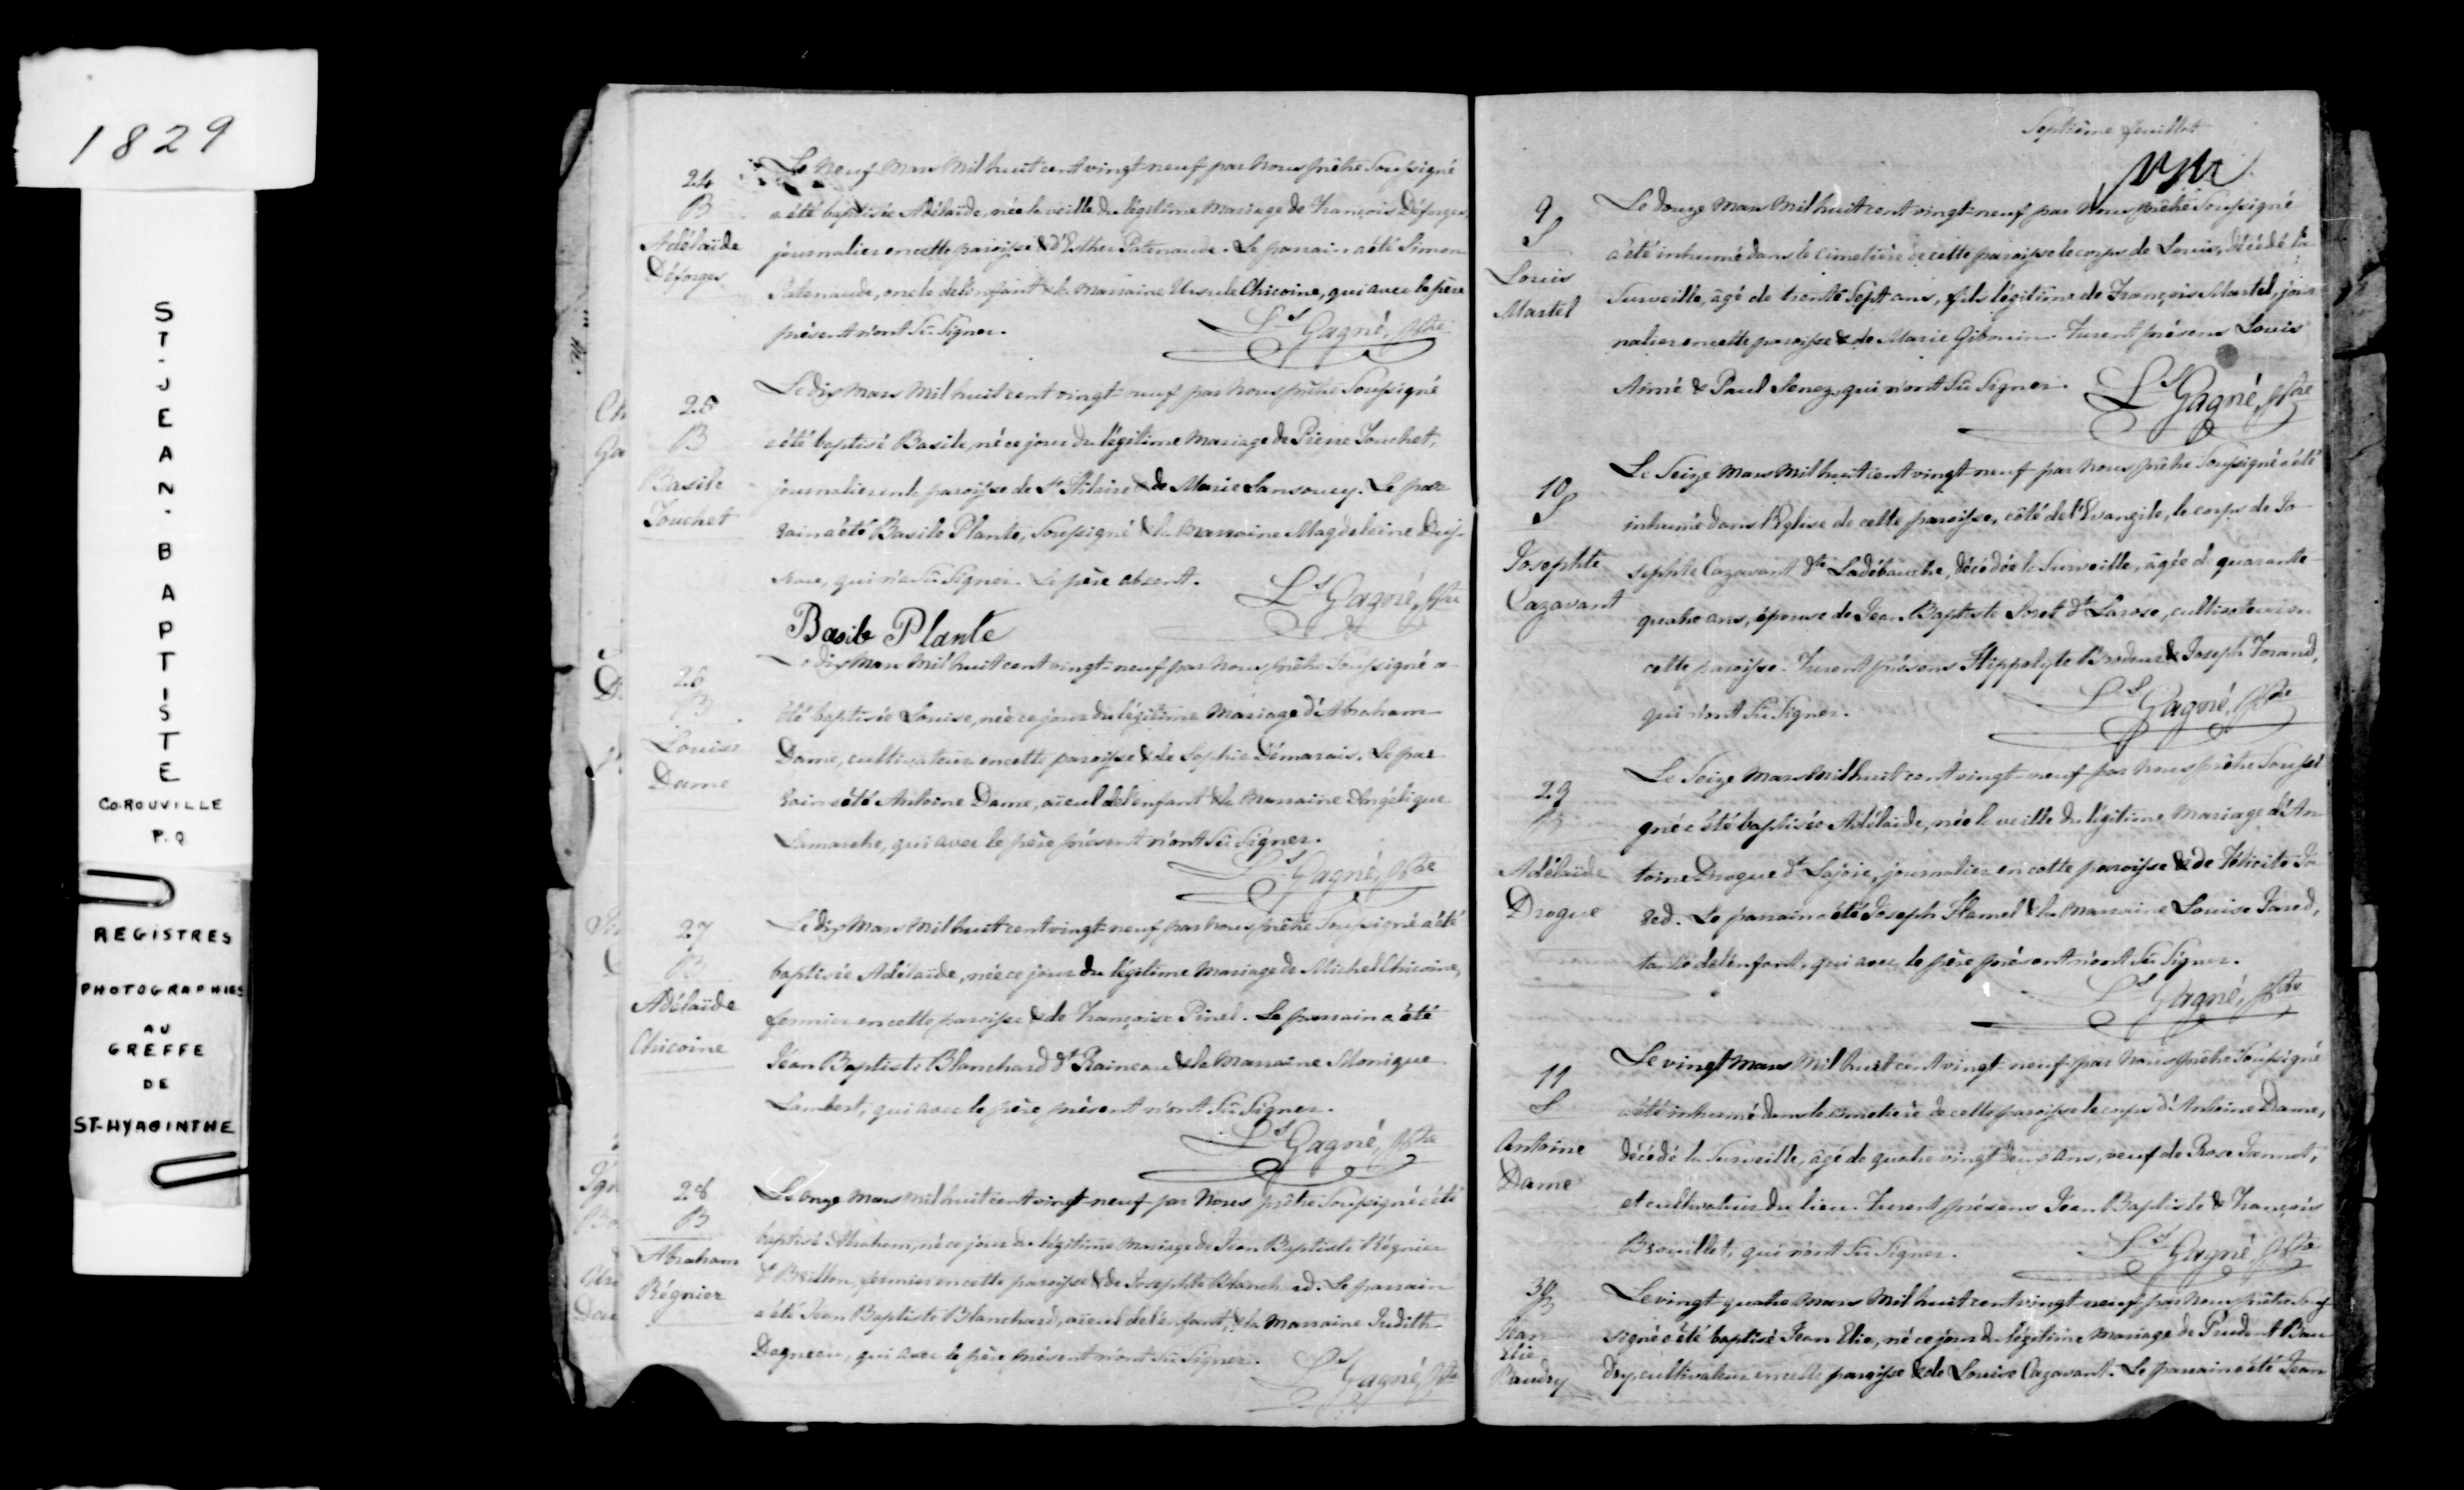 1829
ST-JEAN-BAPTISTE
CO-ROUVILLE
P.Q
REGISTRES
PHOTOGRAPHIES
AU
GREFFE
DE
ST-HYACINTHE
24
B
Adélaïde
Déforges
Le neuf Mars Mil huit cent vingt-neuf par Nous prêtre Soussigné
a été baptisée Adélaïde, née la veille du légitime Mariage de François Déforges,
journalier en cette paroisse & d'Esther Patenaude. Le parrain a été Simon
Patenaude, oncle de l'enfant & la Marraine Ursule Chicoine, qui avec le père
présent n'ont Sû Signer.
Ls Gagné, Ptre
25
B
Basile
Touchet
Le dix Mars Mil huit cent vingt-neuf par Nous prêtre Soussigné
a été baptisé Basile, né ce jour du légitime Mariage de Pierre Touchet,
journalier en la paroisse de St Hilaire & de Marie Sansoucy. Le par
rain a été Basile Plante, Soussigné & la Marraine Magdeleine
qui n'a Sû Signer. Le père absent.
Ls Gagné, Ptre
Basile Plante
26
B
Louise
Dame
Le dix Mars Mil huit cent vingt-neuf par Nous prêtre Soussigné a
été baptisée Louise, née ce jour du légitime Mariage d'Abraham
Dame, cultivateur en cette paroisse & de Sophie Démarais. Le par
rain a été Antoine Dame, aïeul de l'enfant & la Marraine Angélique
Lamarche, qui avec le père présent n'ont Sû Signer.
Ls Gagné, Ptre
27
B
Adélaïde
Chicoine
Le dix Mars Mil huit cent vingt-neuf par Nous prêtre Soussigné a été
baptisée Adélaïde, née ce jour du légitime Mariage de Michel Chicoine,
fermier en cette paroisse & de Françoise Pinel. Le parrain a été
Jean Baptiste Blanchard dt Raineau & la Marraine Monique
Lambert, qui avec le père présent n'ont Sû Signer.
Ls Gagné, Ptre
28
B
Abraham
Régnier
Le onze Mars Mil huit cent vingt-neuf par Nous prêtre Soussigné a été
baptisé Abraham, né ce jour du légitime Mariage de Jean Baptiste Régnier
dt Brillon, fermier en cette paroisse & de Josephte Blanchard. Le parrain
a été Jean Baptiste Blanchard, aïeul de l'enfant, & la Marraine Judith
Dagneau, qui avec le père présent n'ont Sû Signer.
Ls Gagné, Ptre
Septième feuillet
9
S
Louis
Martel
Le douze Mars Mil huit cent vingt-neuf par Nous prêtre Soussigné
a été inhumé dans le cimetière de cette paroisse le corps de Louis, décédé la
Surveille, âgé de trente Sept ans, fils légitime de François Martel, jour
nalier en cette paroisse & de Marie Gibouin. Furent présens Louis
Aimé & Paul Senez, qui n'ont Sû Signer.
Ls Gagné, Ptre
10
S
Josephte
Cazavant
Le Seize Mars Mil huit cent vingt-neuf par Nous prêtre Soussigné a été
inhumé dans l'Eglise de cette paroisse, côté de l'Evangile, le corps de Jo
sephte Cazavant dte Ladébauche, décédée la Surveille, âgée de quarante
quatre ans, épouse de Jean Baptiste Poret dt Larose, cultivateur en
cette paroisse. Furent présens Hippolyte Brodeur & Joseph Forand,
qui n'ont Sû Signer.
Ls Gagné, Ptre
29
B
Adélaïde
Drogue
Le Seize Mars Mil huit cent vingt-neuf par Nous prêtre Soussi
gné a été baptisée Adélaïde, née la veille du légitime Mariage d'An
toine Drogue dt Lajoie, journalier en cette paroisse & de Félicité Ja
red. Le parrain a été Joseph Hamel & la Marraine Louise Jared,
tante de l'enfant, qui avec le père présent n'ont Sû Signer.
Ls Gagné, Ptre
11
S
Antoine
Dame
Le vingt Mars Mil huit cent vingt-neuf par Nous prêtre Soussigné
a été inhumé dans le cimetière de cette paroisse le corps d'Antoine Dame,
décédé la Surveille, âgé de quatre vingt deux ans, veuf de Rose Jannot,
et cultivateur du lieu. Furent présens Jean Baptiste & François
Brouillet, qui n'ont Sû Signer.
Ls Gagné, Ptre
30
B
Jean
Elie
Baudry
Le vingt-quatre Mars Mil huit cent vingt-neuf par Nous prêtre Sous
signé a été baptisé Jean Elie, né ce jour du légitime Mariage de Prudent Bau
dry, cultivateur en cette paroisse & de Louise Cazavant. Le parrain a été Jean